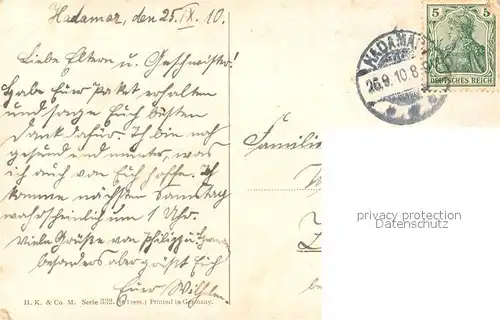 Hadamar, den 25. IX. 10.
Liebe Eltern u. Geschwister!
Habe Euer Paket erhalten
und sage Euch besten
Dank dafür. Ich bin noch
gesund und munter, was
ich auch von Euch hoffe. Ich
komme nächsten Samstag
wahrscheinlich um 1 Uhr.
Viele Grüße von Philipp u.
besonders aber grüßt Euch
Euer Wilhelm
H. K. & Co. M. Serie 332. Printed in Germany.
HADAMAR
26.9.10.8-9
5 5
DEUTSCHES REICH
Familie
privacy protection
Datenschutz